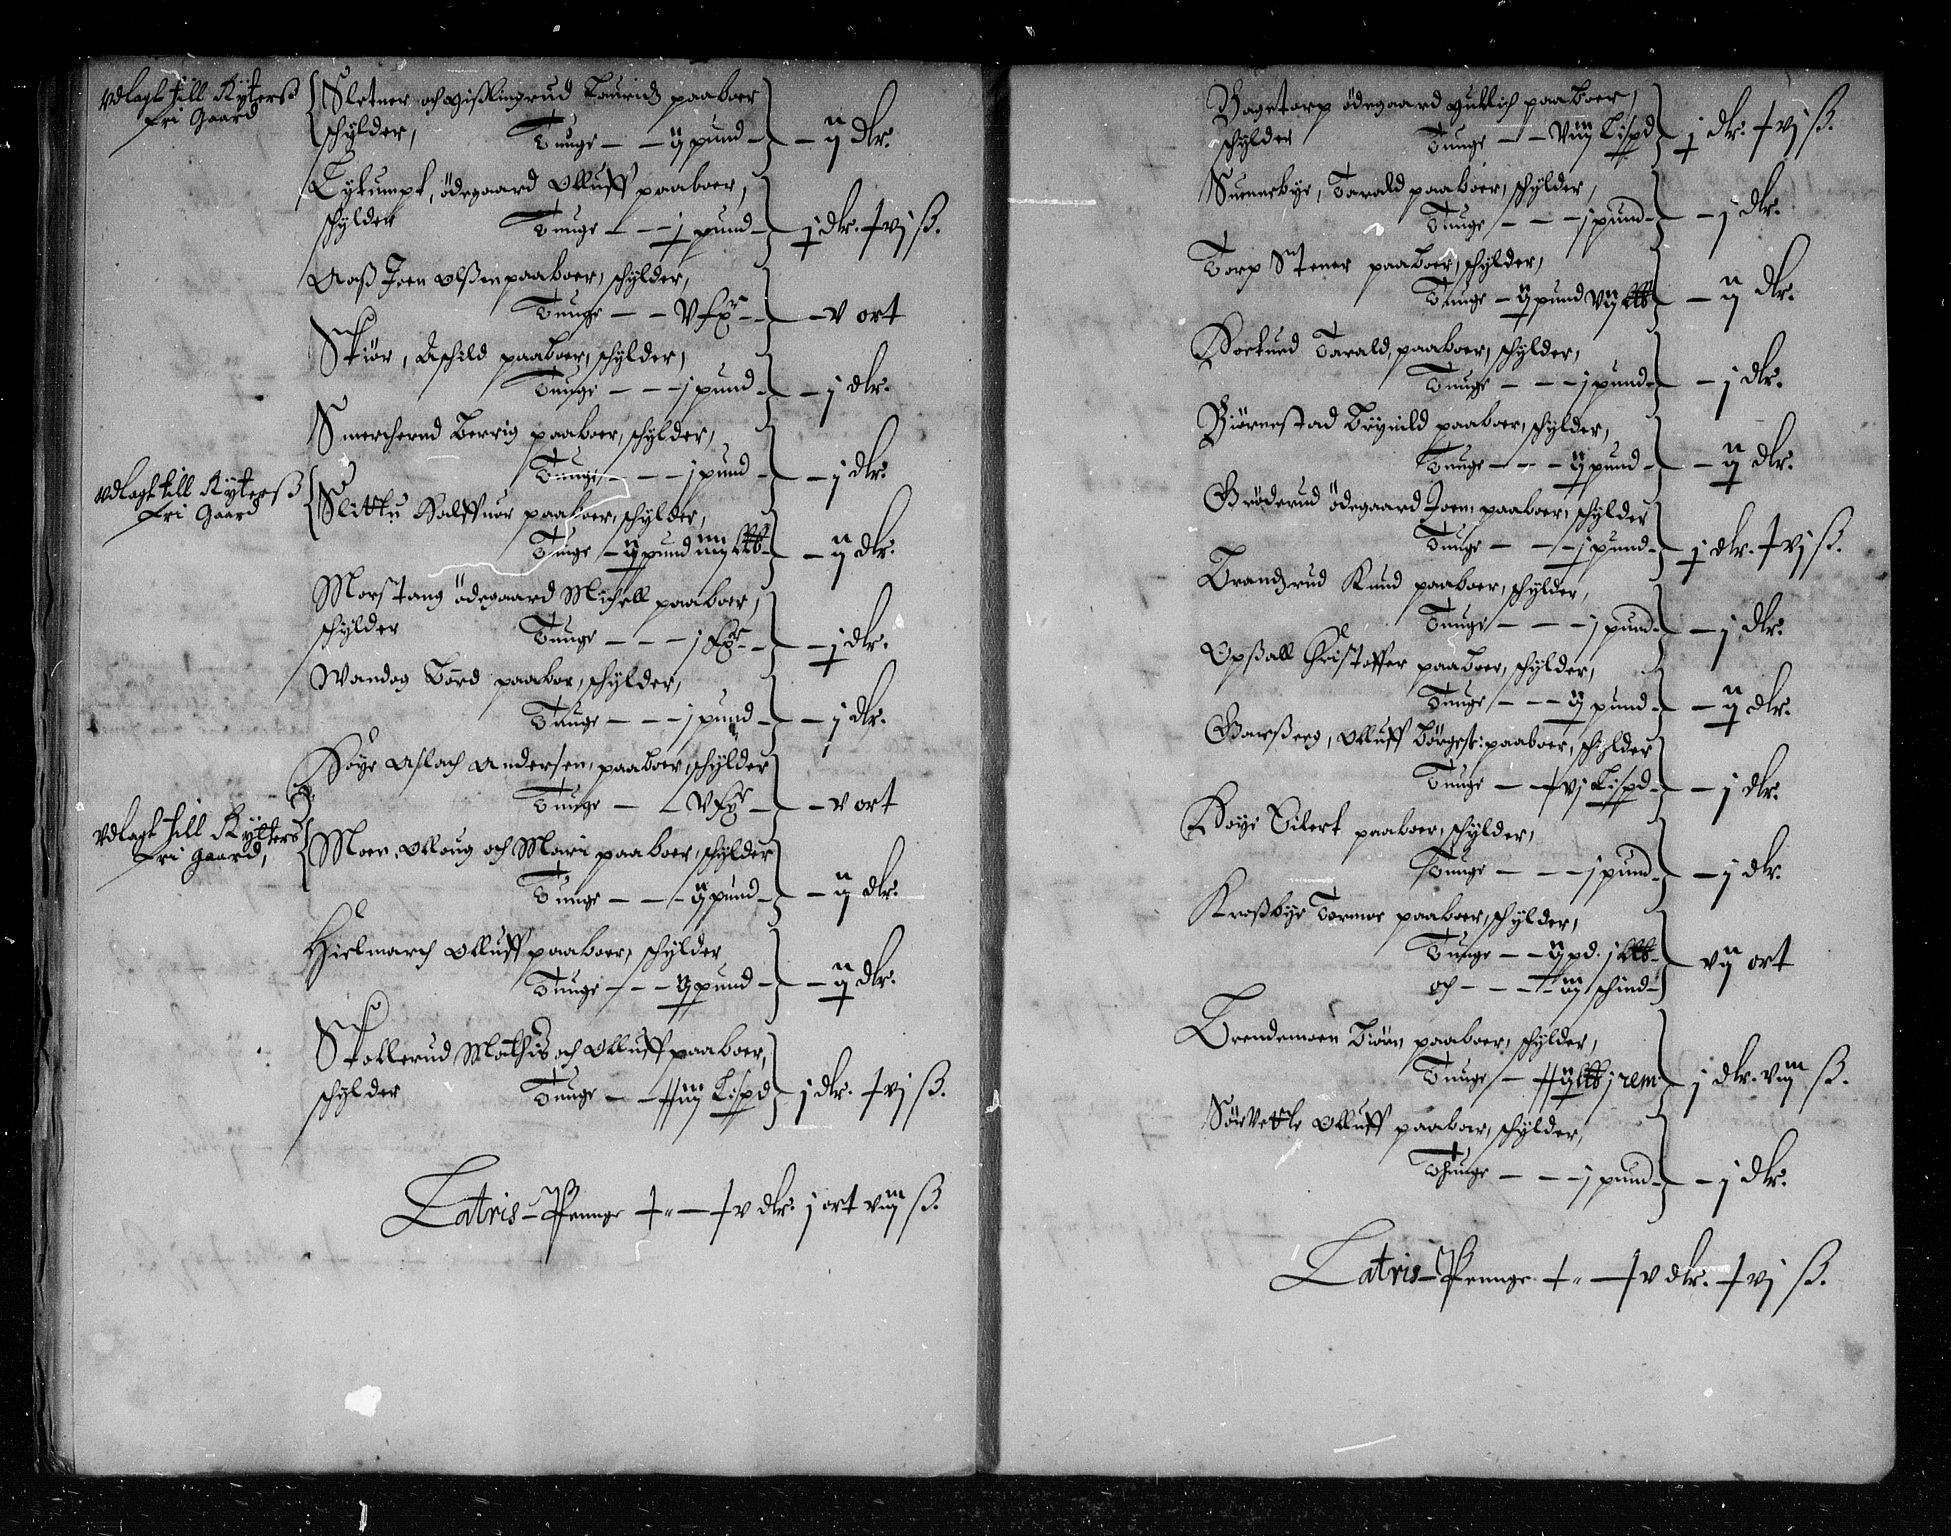 Vdlagt till Rÿterß
fri Gaard
Sletner och Gißlingrud Lauridz paaboer
schÿlder, Tunge — — ij pund — ij dlr.
Lykumpf, ödegaard Olluff paaboer,
schÿlder Tunge — — j pund — j dlr. xvj ß.
Aaß Joen Olßen paaboer, schÿlder,
Tunge — — V fxr — v ort
Skiör, Aschild paaboer, schÿlder,
Tunge — — j pund — j dlr.
Smercherud Berrig paaboer, schÿlder,
Tunge — — j pund — j dlr.
Vdlagt till Rÿterß
fri Gaard
Slittu Halffuor paaboer, schÿlder,
Tunge — ij pund iiij — ij dlr.
Morstang ödegaard Michell paaboer,
schÿlder Tunge — — j fxr — j dlr.
Wandog Bord paaboer, schÿlder,
Tunge — — j pund — j dlr.
Höye Aslach Andersen, paaboer, schÿlder
Tunge — — V fxr — v ort
Vdlagt till Rÿtters
fri Gaard,
Moen, Olloug och Mari paaboer, schÿlder
Tunge — — ij pund — ij dlr.
Hielmarch Olluff paaboer, schÿlder
Tunge — — ij pund — ij dlr.
Skollerud Mathis och Olluff paaboer,
schÿlder Tunge — xxiij Lispd j dlr. xvj ß.
Latris — Pennge x„ — xv dlr. j ort viij ß.
Bagetorp ödegaard Gulich paaboer,
schÿlder Tunge — — Viij Lispd j dlr. xvj ß.
Sunnerbye, Tarald paaboer, schÿlder,
Tunge — — j pund — j dlr.
Torp Stener paaboer, schÿlder,
Tunge — ij pund Vij — ij dlr.
Tarald, paaboer, schÿlder,
Tunge — — j pund — j dlr.
Biörnestad Brynild paaboer, schÿlder,
Tunge — — ij pund — ij dlr.
Gröderud ödegaard Joen, paaboer, schÿlder
Tunge — — j pund — j dlr. xvj ß.
Trandzrud Knud paaboer, schÿlder,
Tunge — — j pund — j dlr.
Opßall Christoffer paaboer, schÿlder,
Tunge — — ij pund — ij dlr.
Olluff paaboer, schÿlder
Tunge — xvj Lispd — j dlr.
Høye Eilert paaboer, schÿlder,
Tunge — — j pund — j dlr.
Kroßbye Tormoe paaboer, schÿlder,
Tunge — — ij pd. j
och — — — xiij schind — vij ort
Trendemoen Biörn paaboer, schÿlder,
Tunge — xxij j rem j dlr. viij ß.
Sörvettle Olluff paaboer, schÿlder,
Thunge — — j pund — j dlr.
Latris — Pennge x„ — xv dlr. xvj ß.